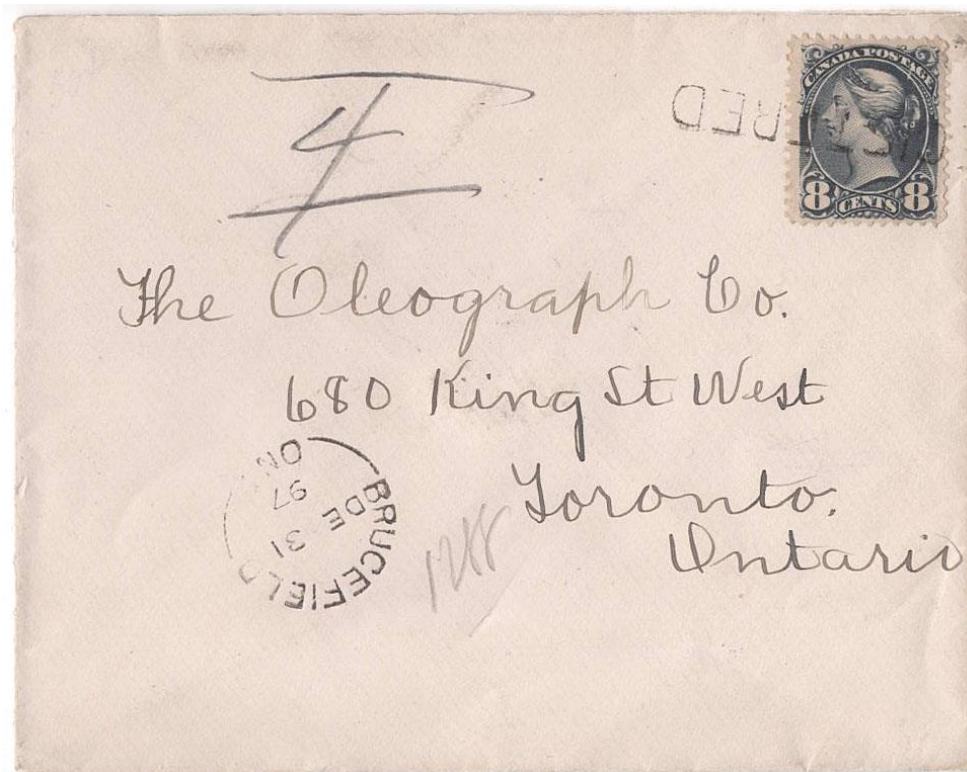 CANADA POSTAGE
8 CENTS 8
RED
4
The Oleograph Co.
680 King St West
Toronto.
Ontario
BRUCEFIELD
ON
DE 31
97
1288